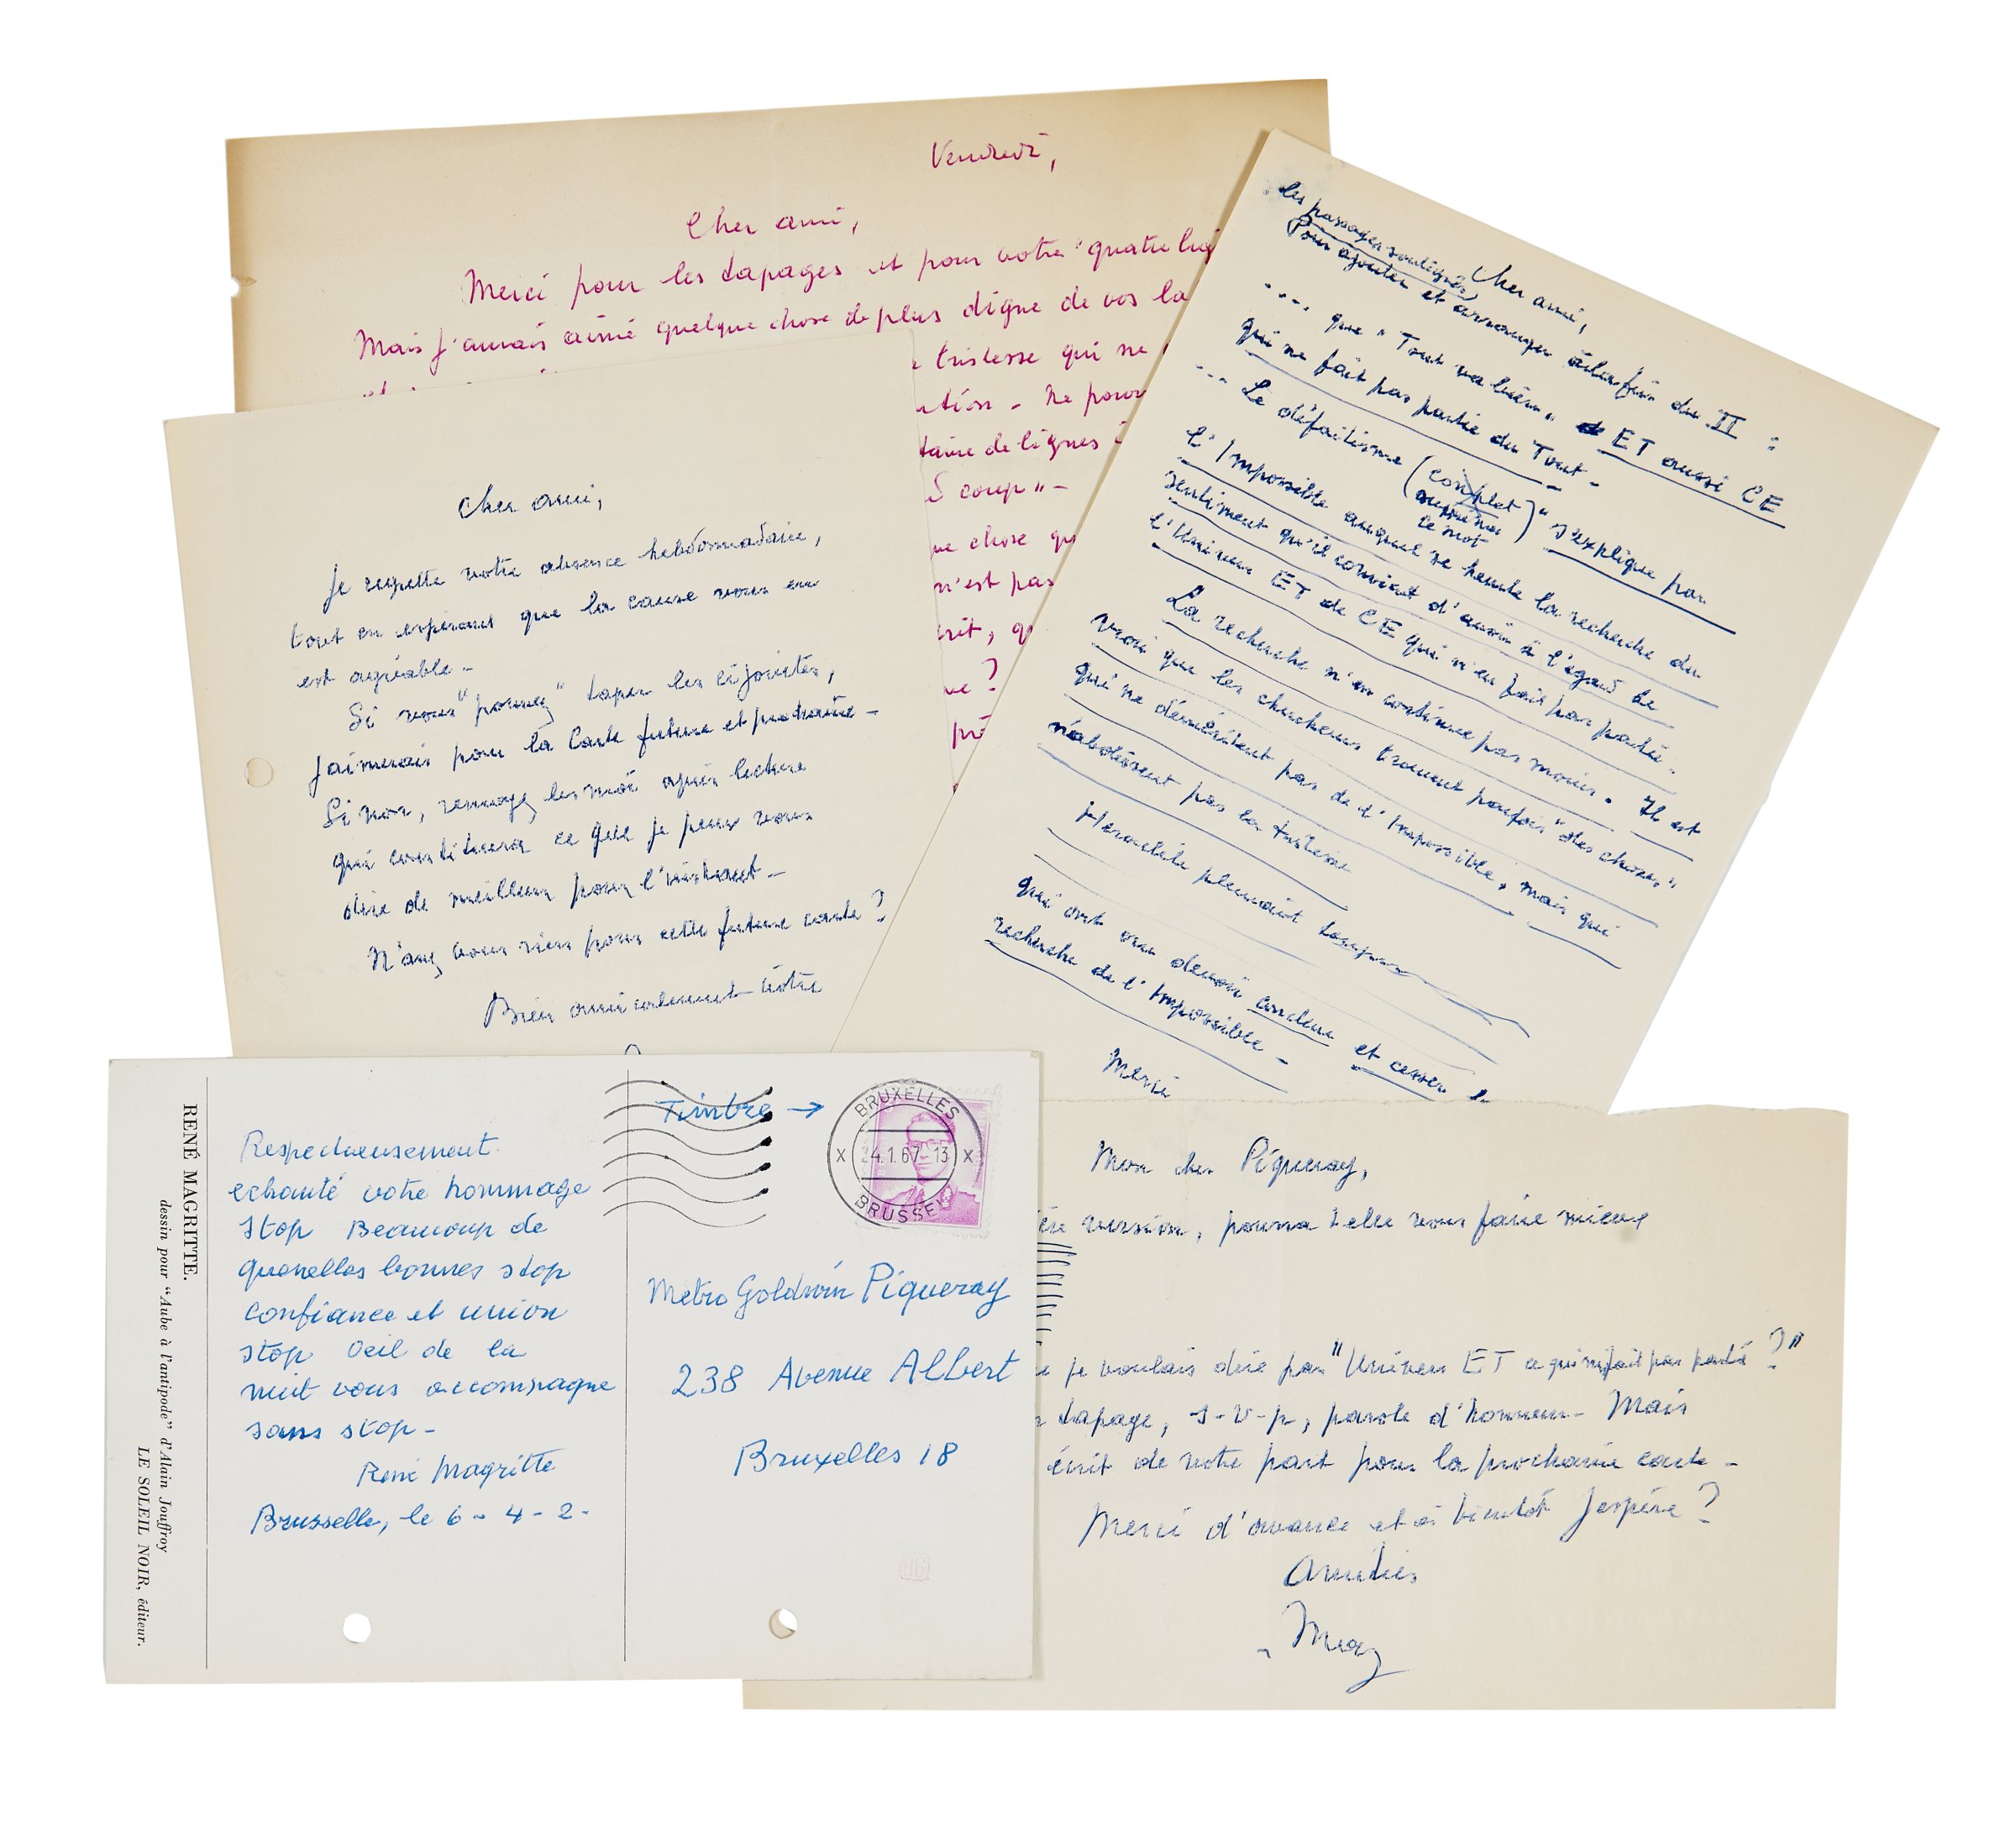 Vendredi,
Cher ami,
Merci pour les tapages et pour votre "quatre
Mais j'aurais aimé quelque chose de plus digne de vos
tristesse qui ne
Ne
taire de lignes
coup" –
chose
n'est pas
?
les passages soulignés
Cher ami,
Pour ajouter et arranger à la fin du II :
.... que "Tout va bien" ET aussi CE
qui ne fait pas partie du Tout –
... Le défaitisme (complet) "s'explique par
ce mot
l'Impossible auquel se heurte la recherche du
sentiment qu'il convient d'avoir à l'égard de
l'Univers ET de CE qui n'en fait pas partie.
La recherche n'en continue pas moins. Il est
vrai que les chercheurs trouvent parfois "des choses"
qui ne déméritent pas de l'Impossible, mais qui
n'abolissent pas la tristesse
Héraclite pleurait toujours
qui ont cru devoir conclure et cesser la
recherche de l'Impossible –
Merci
Cher ami,
Je regrette votre absence hebdomadaire,
tout en espérant que la cause vous en
est agréable –
Si vous "pouvez" taper les ci-jointes,
J'aimerais pour la Carte future et prochaine –
Si non, renvoyez les moi après lecture
qui constituera ce que je peux vous
dire de meilleur pour l'instant –
N'avez vous rien pour cette future carte ?
Bien amicalement vôtre
Mon cher Piqueray,
version, pourra t-elle vous faire mieux
je voulais dire par "Univers ET ce qui n'en fait pas partie ?"
tapage, s-v-p, parole d'honneur – Mais
écrit de votre part pour la prochaine carte –
Merci d'avance et à bientôt j'espère ?
Amitiés
Mag
RENÉ MAGRITTE.
dessin pour "Aube à l'antipode" d'Alain Jouffroy
LE SOLEIL NOIR, éditeur.
Respectueusement
echouté votre hommage
stop Beaucoup de
quenelles bonnes stop
confiance et union
stop Oeil de la
nuit vous accompagne
sans stop –
René Magritte
Brusselle, le 6 - 4 - 2 -
Timbre →
BRUXELLES
24.1.67-13
BRUSSEL
Metro Goldwin Piqueray
238 Avenue Albert
Bruxelles 18